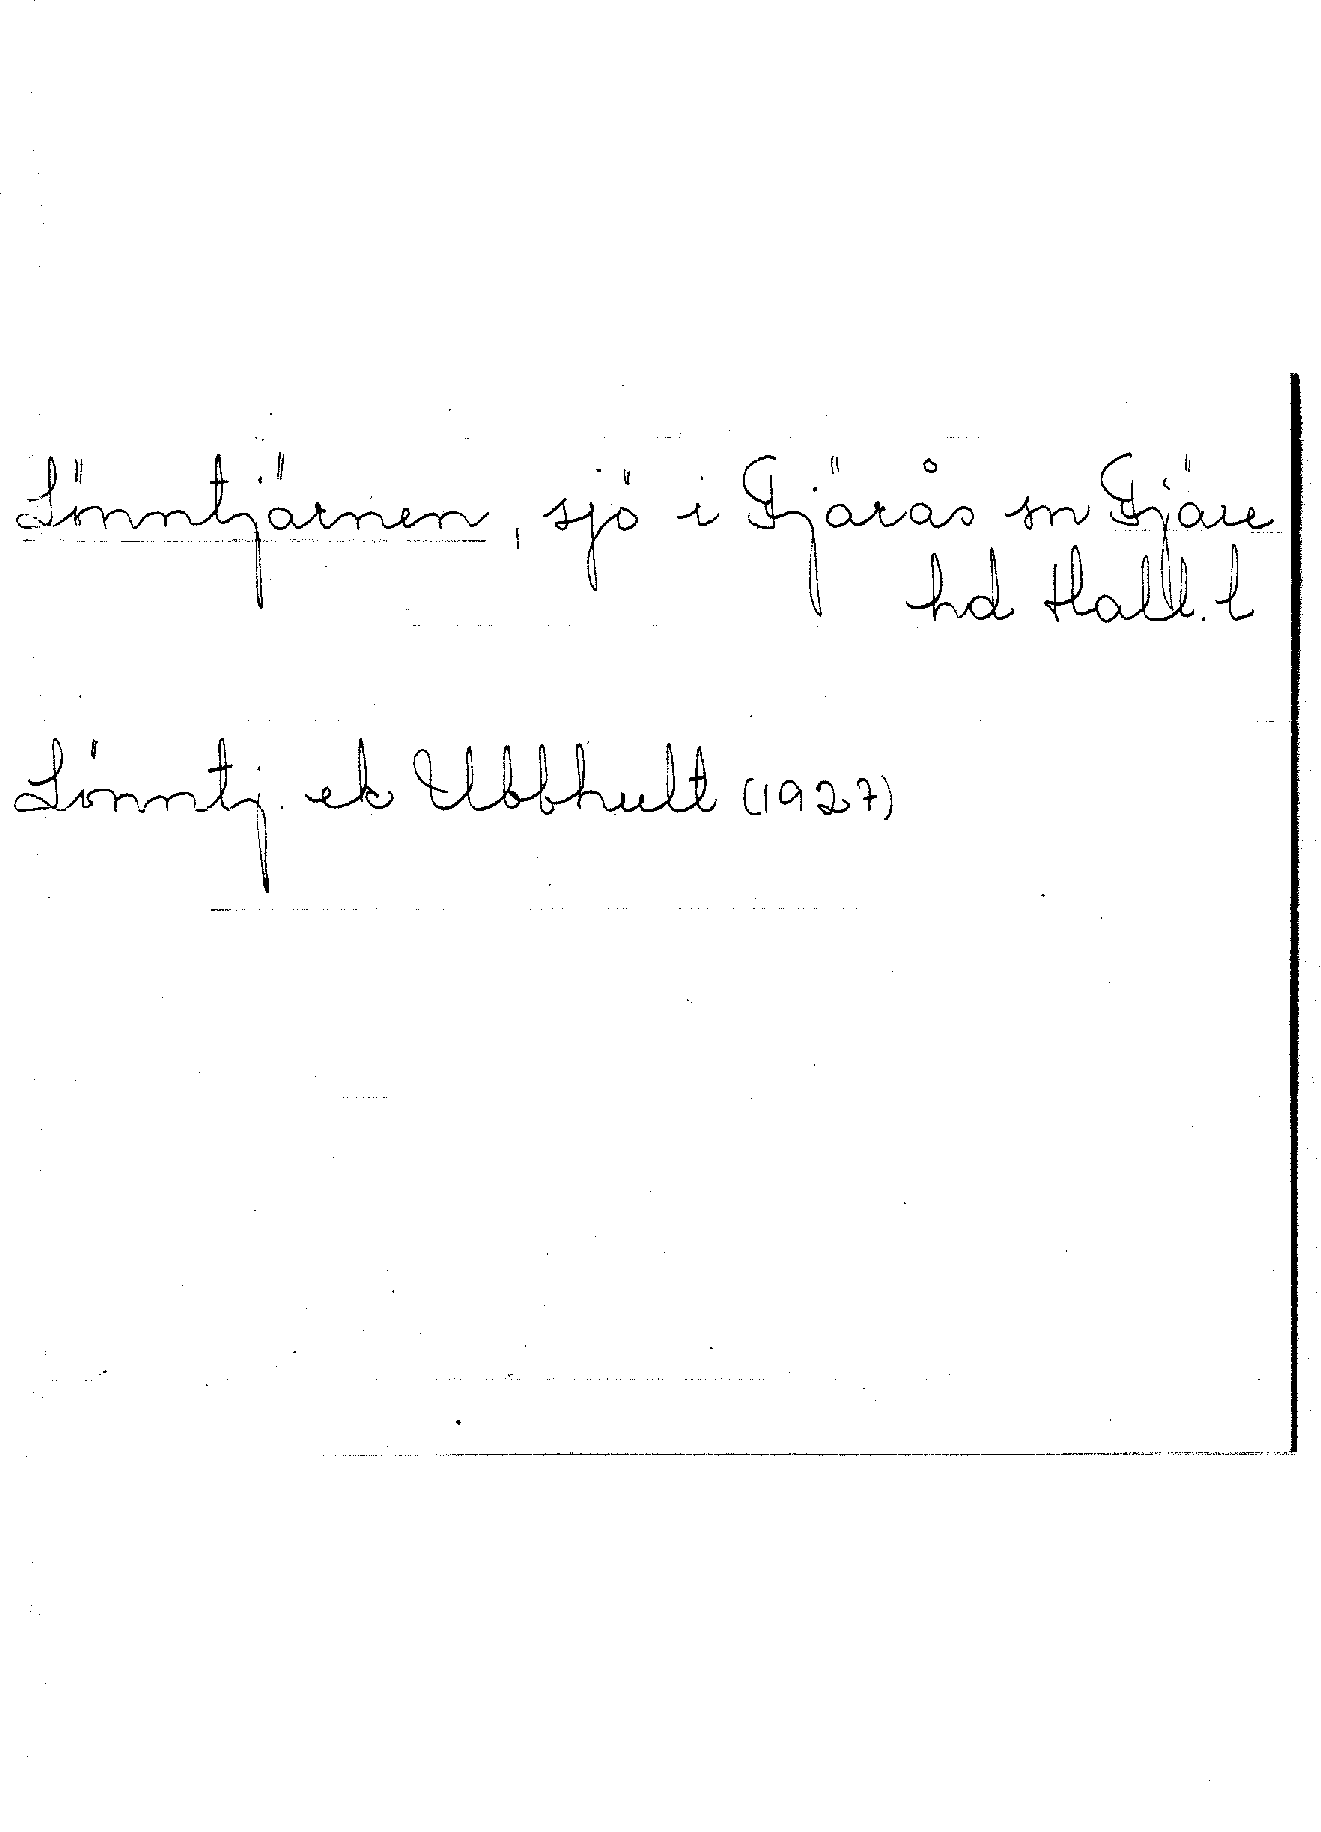 Lönntjärnen, sjö i Fjärås sn Fjäre
hd Hall. l
Lönntj. ek Ubbhult (1927)